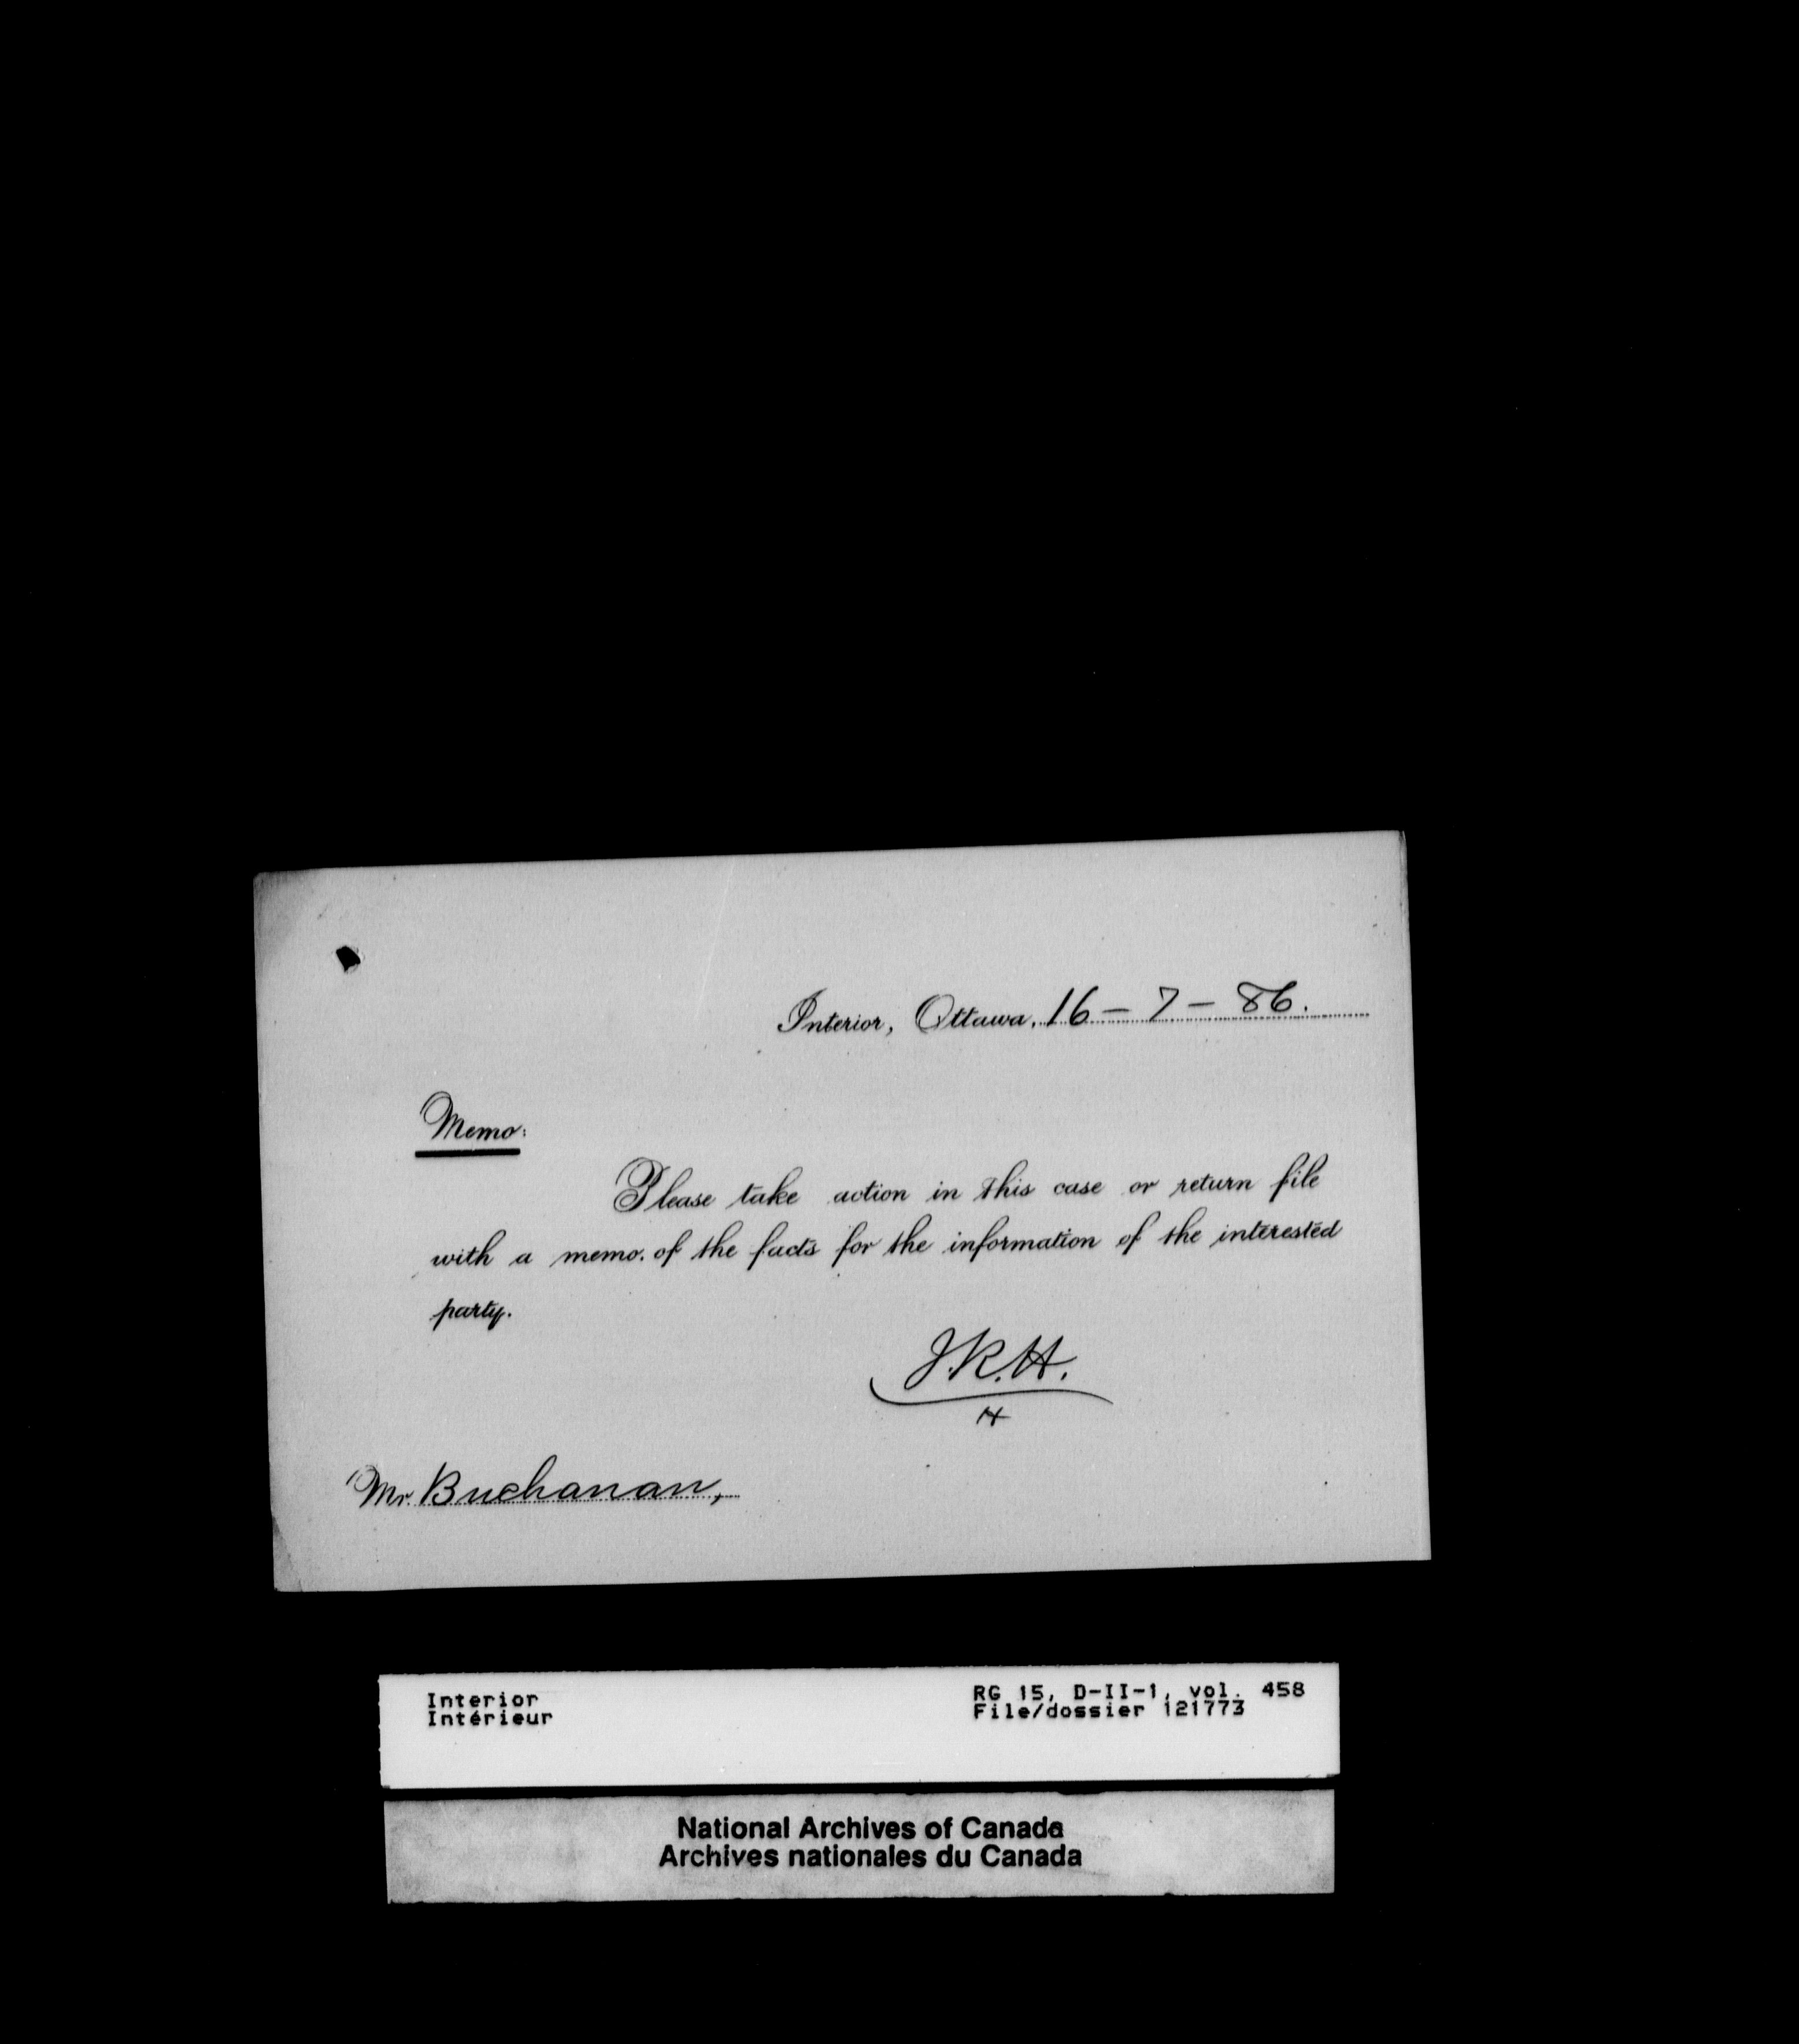 Interior, Ottawa, 16 – 7 – 86.
Memo:
Please take action in this case or return file
with a memo. of the facts for the information of the interested
party.
J.R.H.
H
Mr. Buchanan,
Interior
Intérieur
RG 15, D-II-1, vol. 458
File/dossier 121773
National Archives of Canada
Archives nationales du Canada